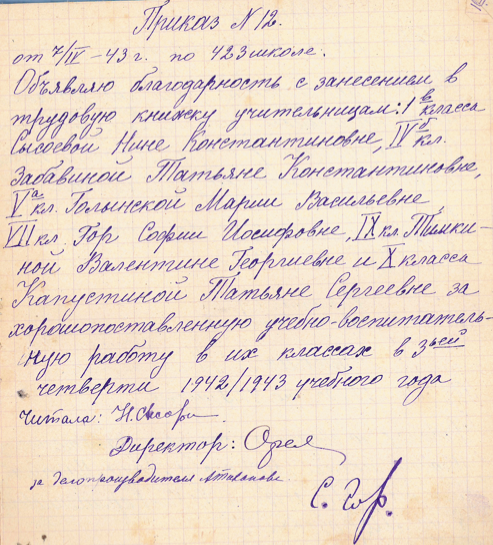 Приказ N 12.
от 7/IV – 43 г. по 423 школе.
Объявляю благодарность с занесением в
трудовую книжку учительницам: 1 в класса
Сысоевой Нине Константиновне, IV б кл.
Забавиной Татьяне Константиновне,
V а кл. Голынской Марии Васильевне,
VII кл. Гор Софии Иосифовне, IX кл. Тимки-
ной Валентине Георгиевне и X класса
Капустиной Татьяне Сергеевне за
хорошопоставленную учебно-воспитатель-
ную работу в их классах в 3ьей
четверти 1942/1943 учебного года
Читала:
Директор:
за делопроизводителя
С. Гор.